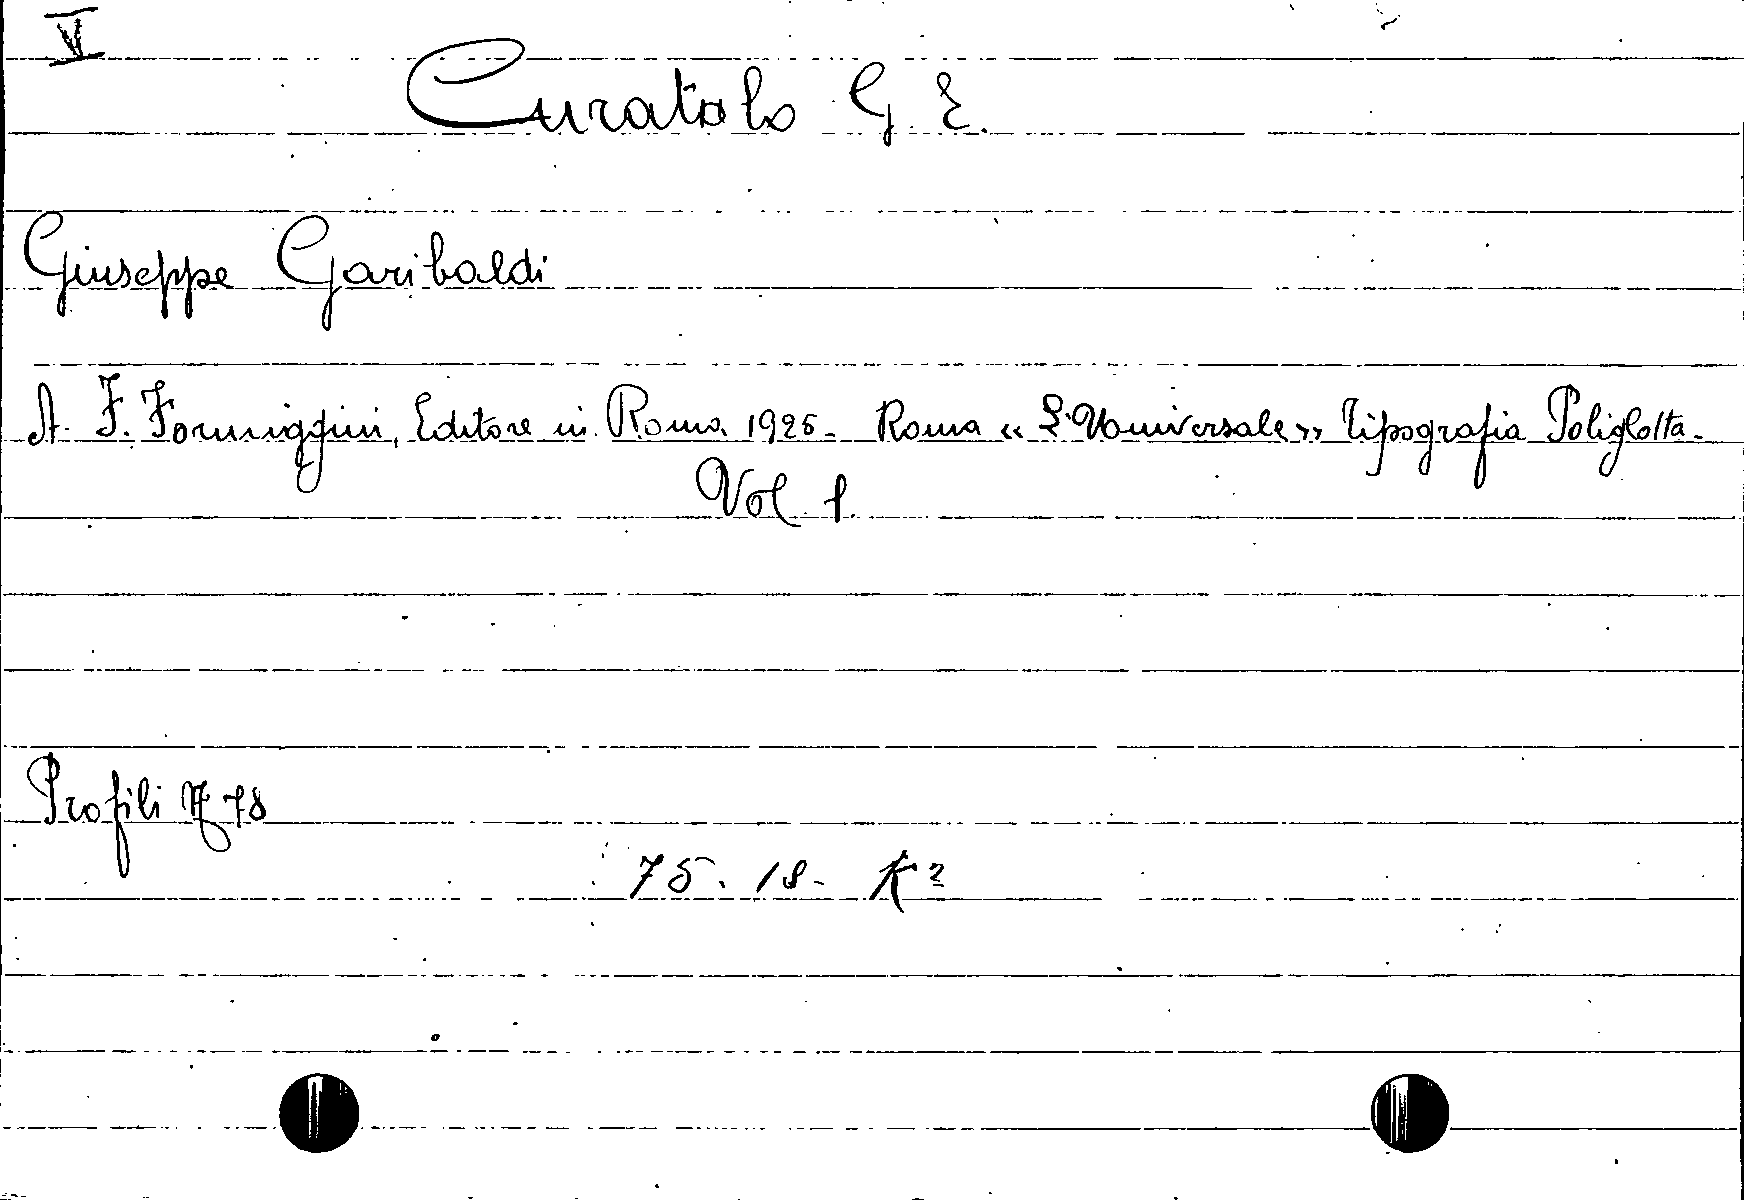 VI
Curatolo G. E.
Giuseppe Garibaldi
A. F. Formiggini, Editore in Roma 1925 - Roma « L'Universale » Tipografia Poliglotta.
Vol 1.
Profili N 78
75. 18. K²